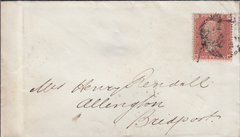 Mrs Henry Kendall
Allington
Bridport.